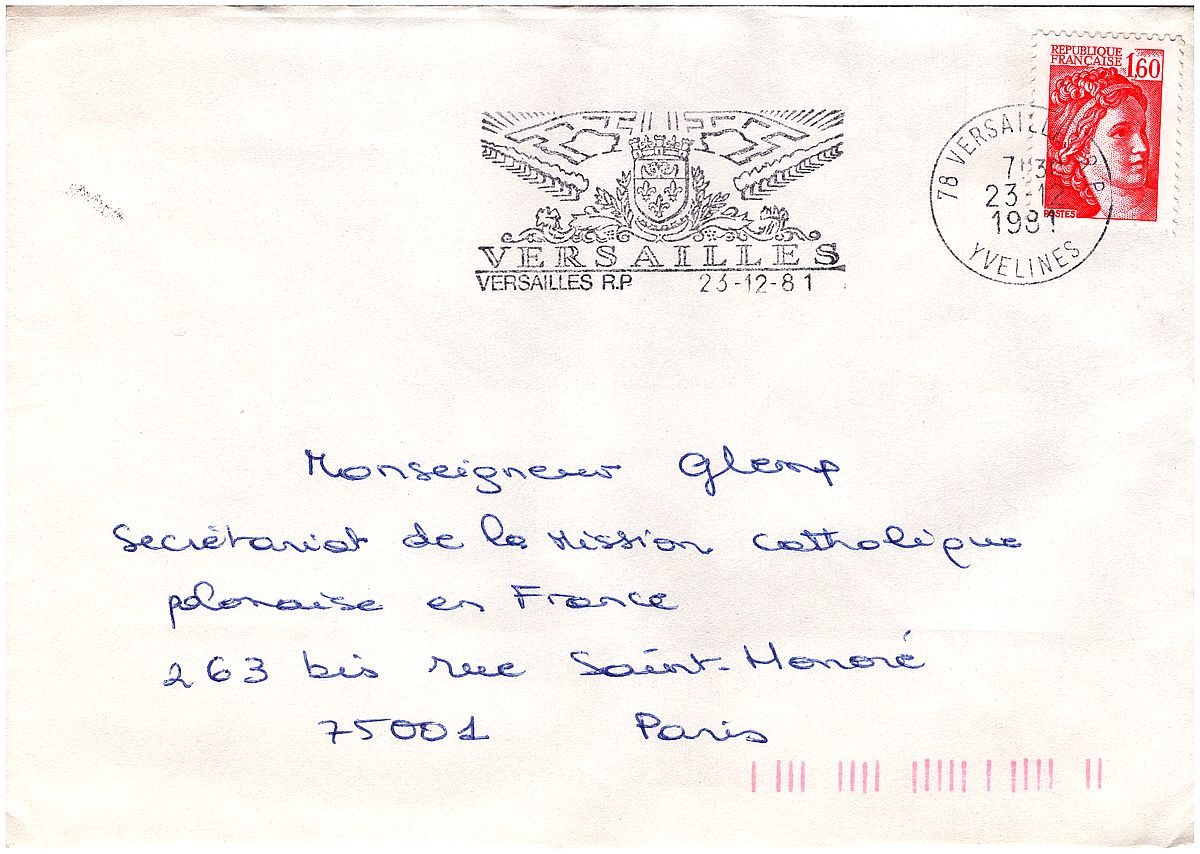 REPUBLIQUE
FRANÇAISE
1,60
POSTES
78 VERSAILLES R.P.
23-12
1981
YVELINES
VERSAILLES
VERSAILLES R.P. 23-12-81
Monseigneur Glemp
Secrétariat de la Mission catholique
polonaise en France
263 bis rue Saint-Honoré
75001 Paris